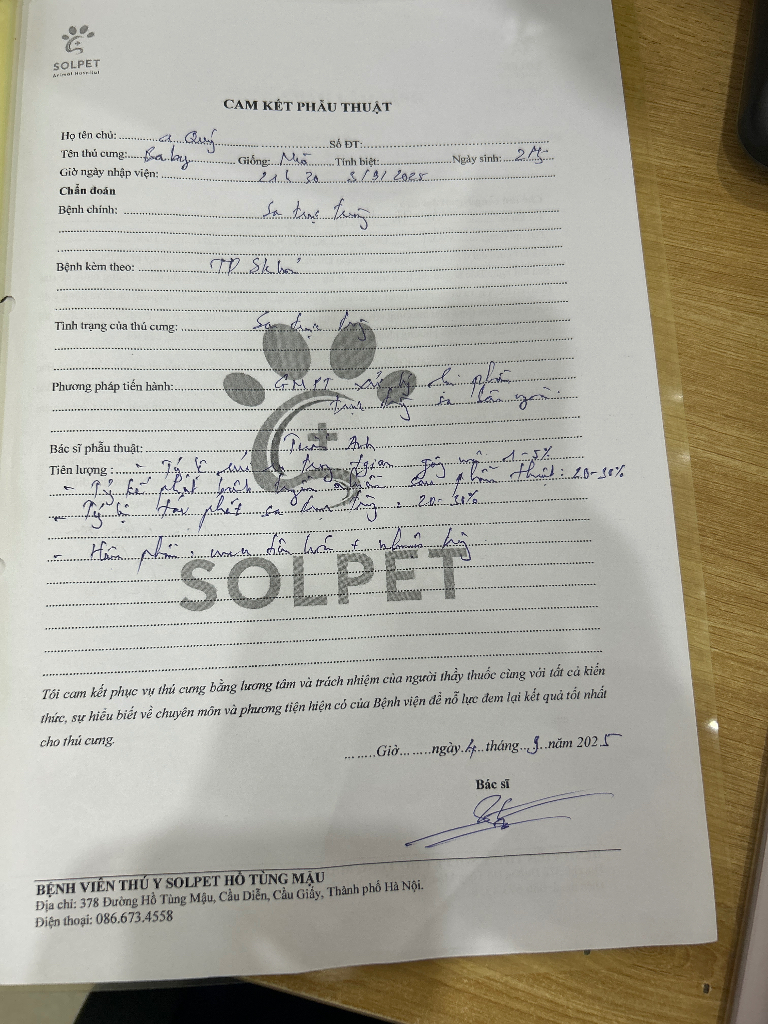 SOLPET
Animal Hospital
CAM KẾT PHẪU THUẬT
Họ tên chủ: a Quý Số ĐT:
Tên thú cưng: Baby Giống: Tính biệt: Ngày sinh:
Giờ ngày nhập viện: 21h 30 3/9/2025
Chẩn đoán
Bệnh chính: Sa trực tràng
Bệnh kèm theo: TD
Tình trạng của thú cưng: Sa trực tràng
Phương pháp tiến hành: GMPT xử lý
trực tràng sa bên ngoài
Bác sĩ phẫu thuật: Anh
Tiên lượng : - Tỷ lệ trong gian gây mê 1-5%
- Tỷ sau phẫu thuật: 20-30%
- Tỷ lệ tái phát sa trực tràng : 20-30%
- Hậu phẫu : +
SOLPET
Tôi cam kết phục vụ thú cưng bằng lương tâm và trách nhiệm của người thầy thuốc cùng với tất cả kiến
thức, sự hiểu biết về chuyên môn và phương tiện hiện có của Bệnh viện để nỗ lực đem lại kết quả tốt nhất
cho thú cưng.
........Giờ........ngày.4.tháng..9.năm 2025
Bác sĩ
BỆNH VIỆN THÚ Y SOLPET HỒ TÙNG MẬU
Địa chỉ: 378 Đường Hồ Tùng Mậu, Cầu Diễn, Cầu Giấy, Thành phố Hà Nội.
Điện thoại: 086.673.4558